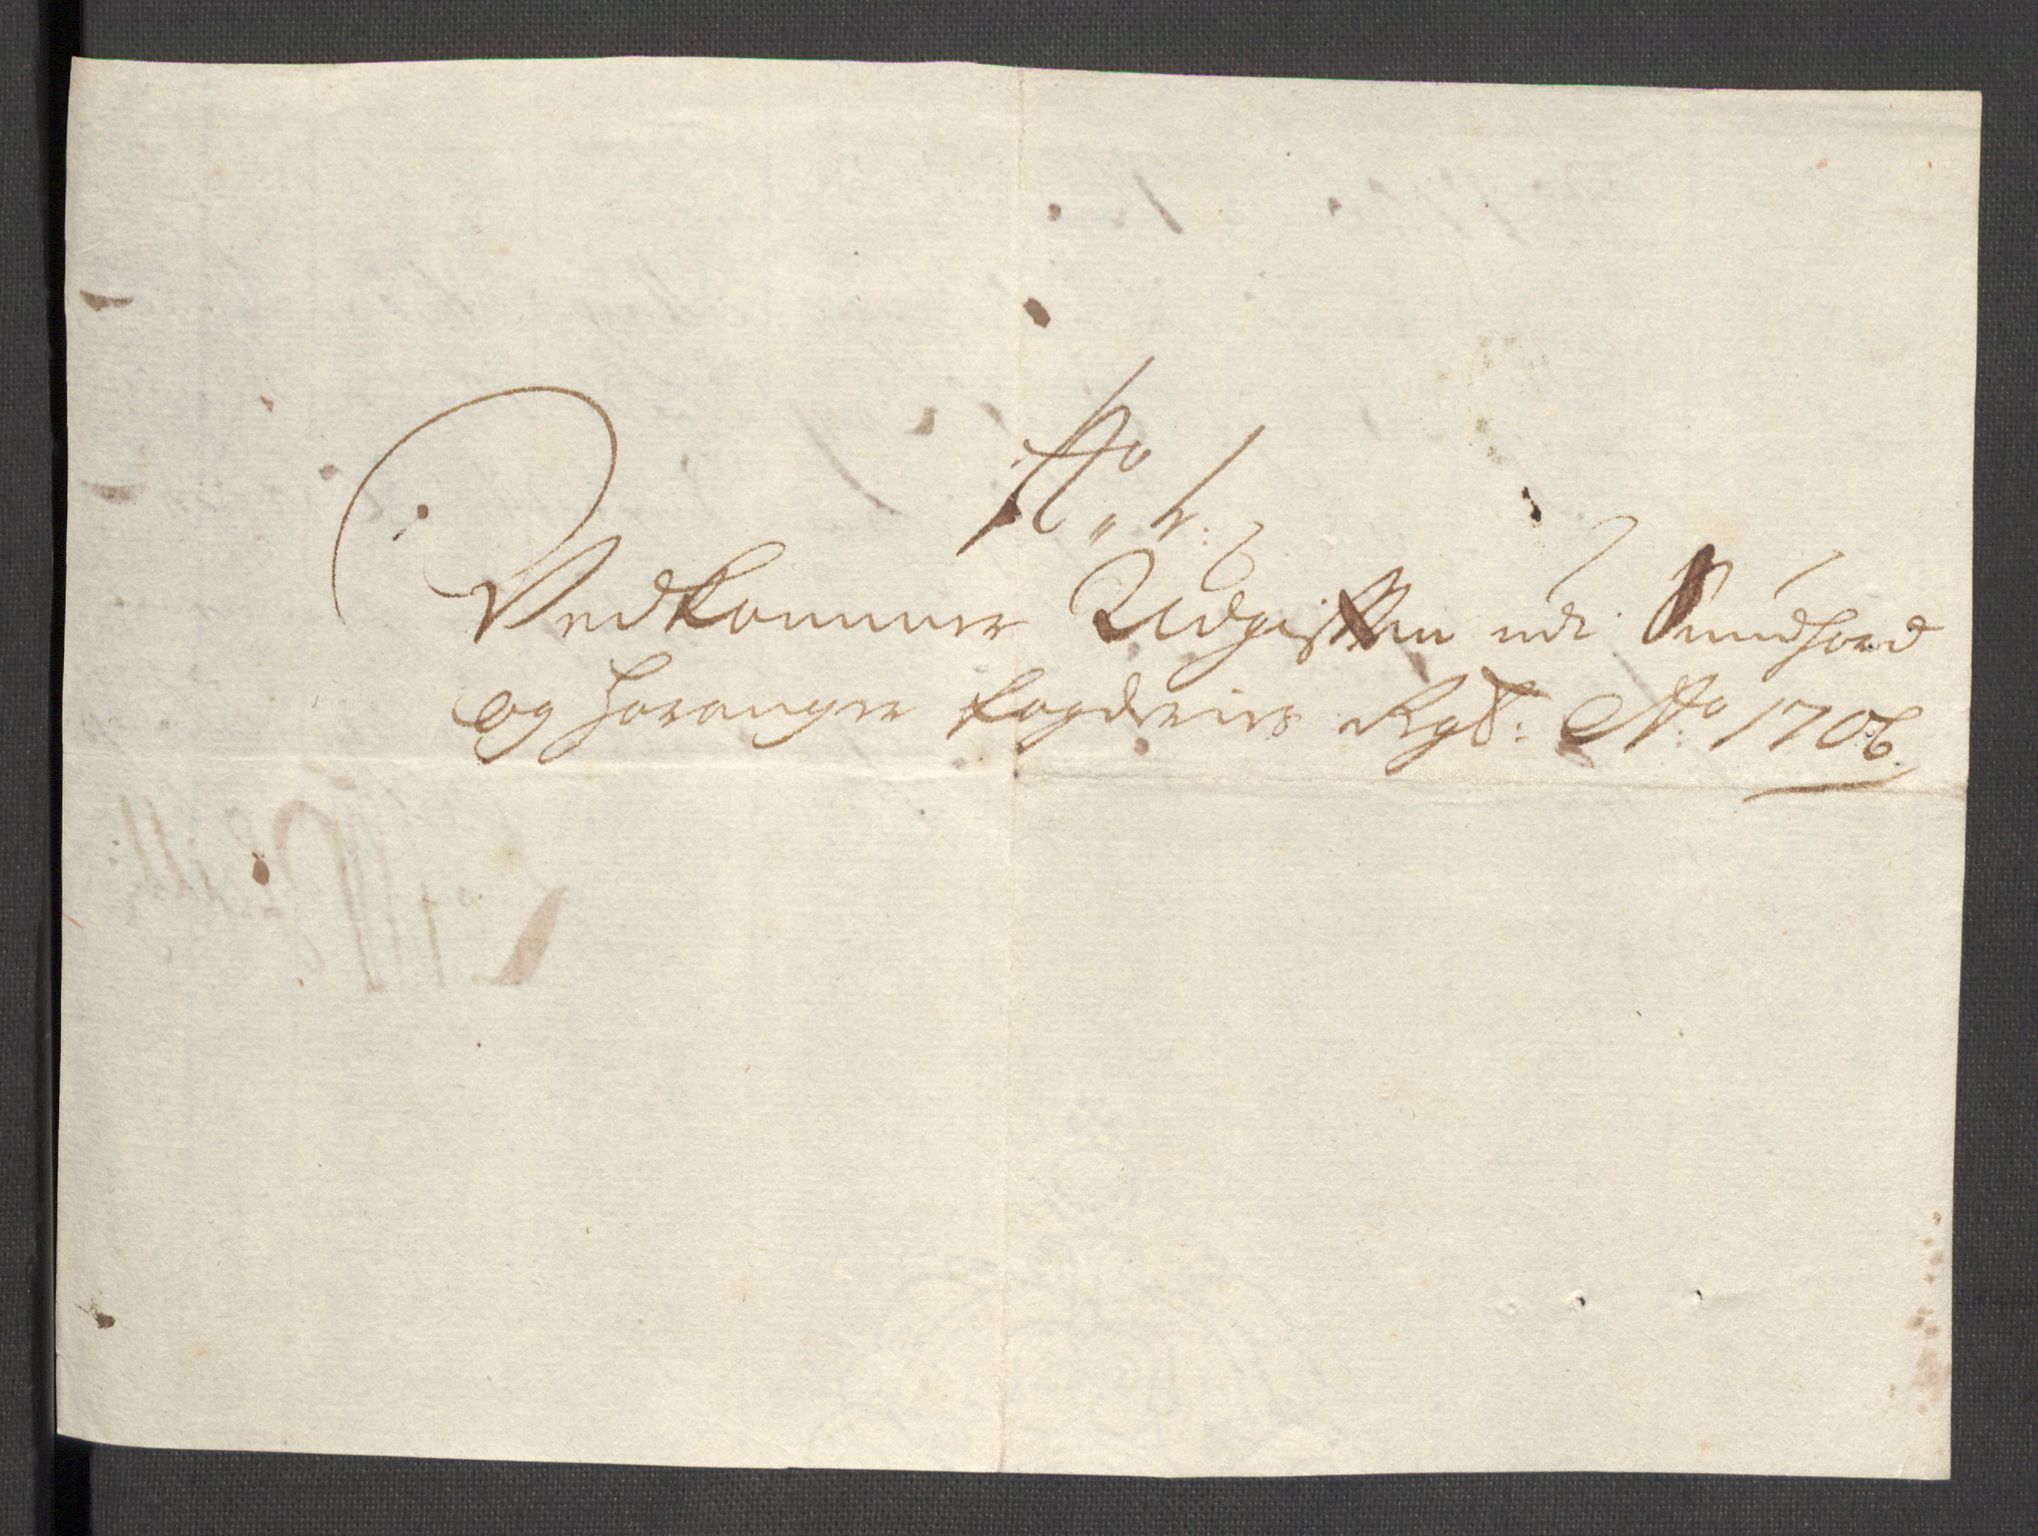 No
Vedkommer Udgifften udi Sundhord
og Haranger fogderies Rgb: Ao 1706.